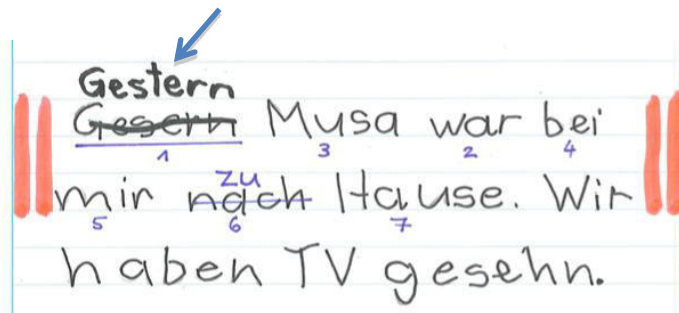 Gestern
Gesern Musa war bei
1 3 2 4
zu
mir nach Hause. Wir
5 6 7
haben TV gesehn.